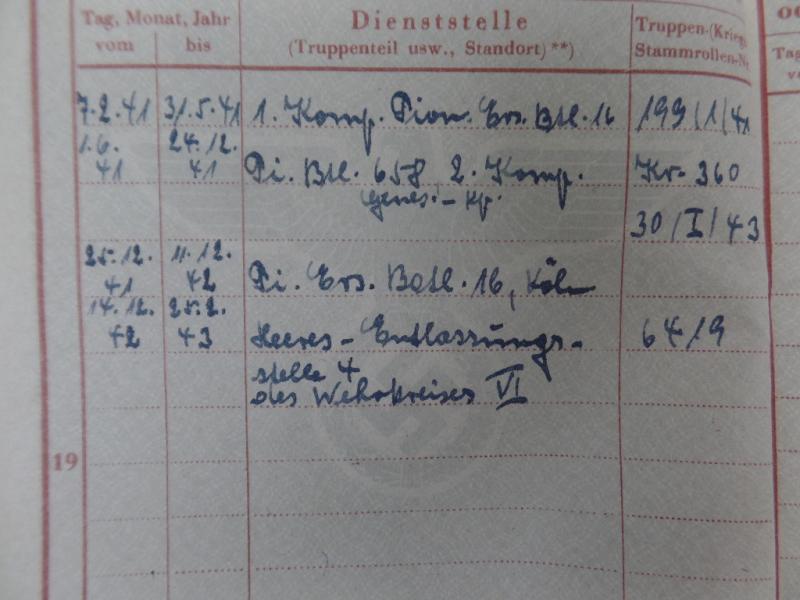 Tag, Monat, Jahr
vom bis
Dienststelle
(Truppenteil usw., Standort) **)
Truppen-(Krieg
Stammrollen-N
Ta
v
7.2.41 31.5.41 1. Komp. Pion. Ers. Btl. 16 199/1/41
1.6. 24.12.
41 41 Pi. Btl. 658 2. Komp. Kr. 360
Genes. - Kp.
30/I/43
25.12. 11.12.
41 42 Pi. Ers. Batl. 16, Köln
14.12. 25.2.
42 43 Heeres-Entlassungs- 64/9
stelle 4
des Wehrkreises VI
19